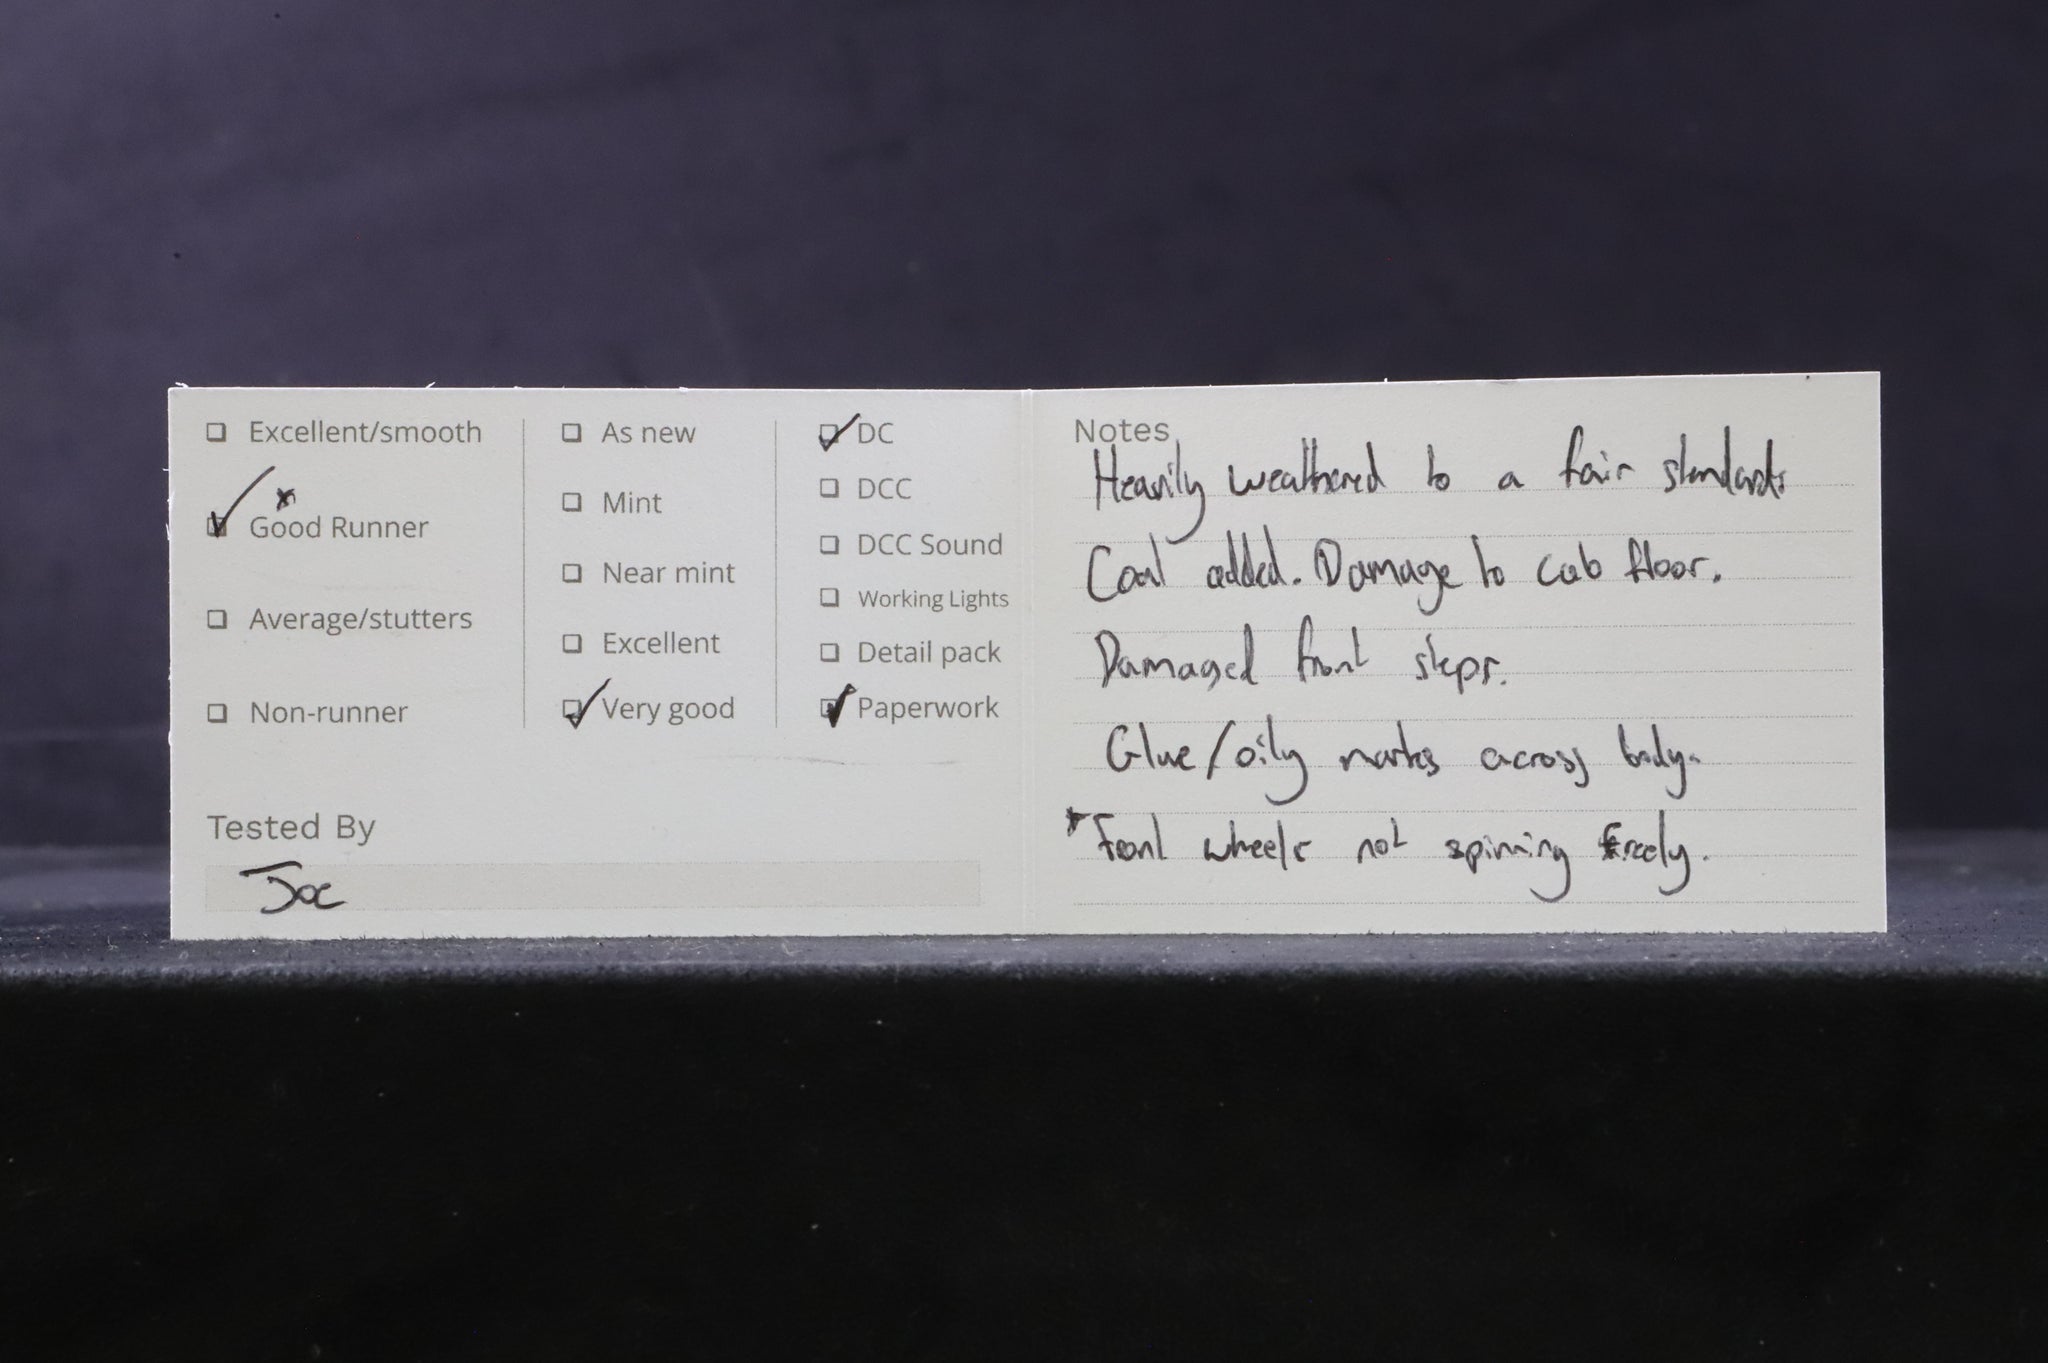 Excellent/smooth
Good Runner
Average/stutters
Non-runner
As new
Mint
Near mint
Excellent
Very good
DC
DCC
DCC Sound
Working Lights
Detail pack
Paperwork
Tested By
Joe
Notes
Heavily weathered to a fair standard.
Coal added. Damage to cab floor.
Damaged front steps.
Glue/oily marks across body.
* Front wheels not spinning freely.